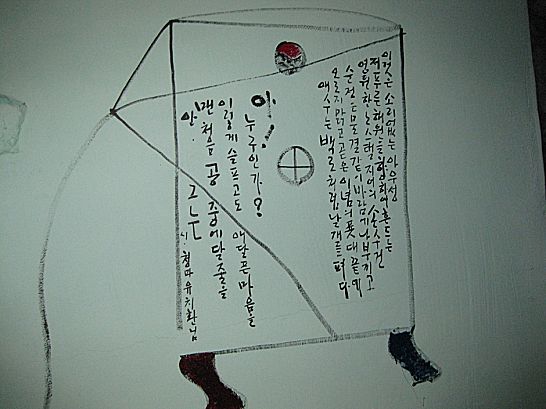 이것은 소리없는 아우성
저푸른해원을향하여흔드는
영원한노스탤지어의 손수건
순정은물결같이바람에나부끼고
오로지맑고곧은이념의푯대끝에
애수는백로처럼날개를펴다
아! 누구인가?
이렇게슬프고도 애달픈마음을
맨처음 공중에달줄을
안. 그는
시. 청마유치환님